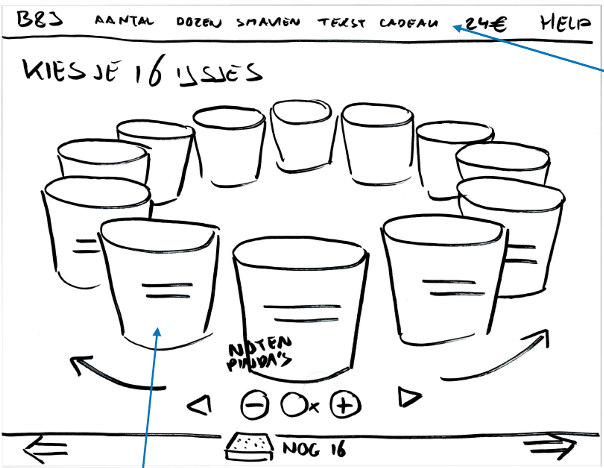 B&J AANTAL DOZEN SMAKEN TEKST CADEAU 24€ HELP
KIES JE 16 IJSJES
NOTEN
PINDA'S
- x +
NOG 16